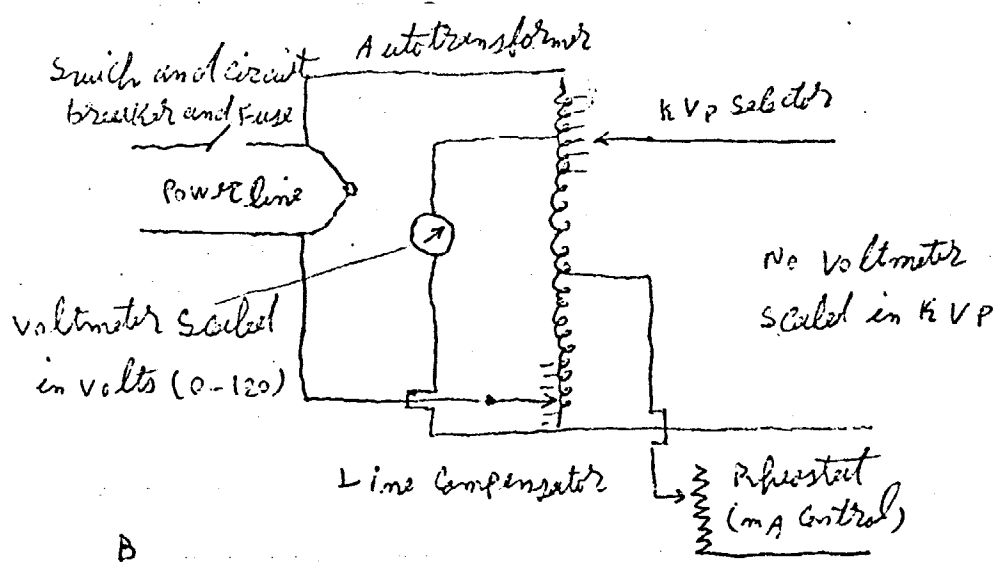 Autotransformer
Swich and circuit
breaker and Fuse
KVP Selector
Power line
No Voltmeter
Scaled in KVP
Voltmeter Scaled
in Volts (0-120)
Line Compensator
Rheostat
(mA Control)
B